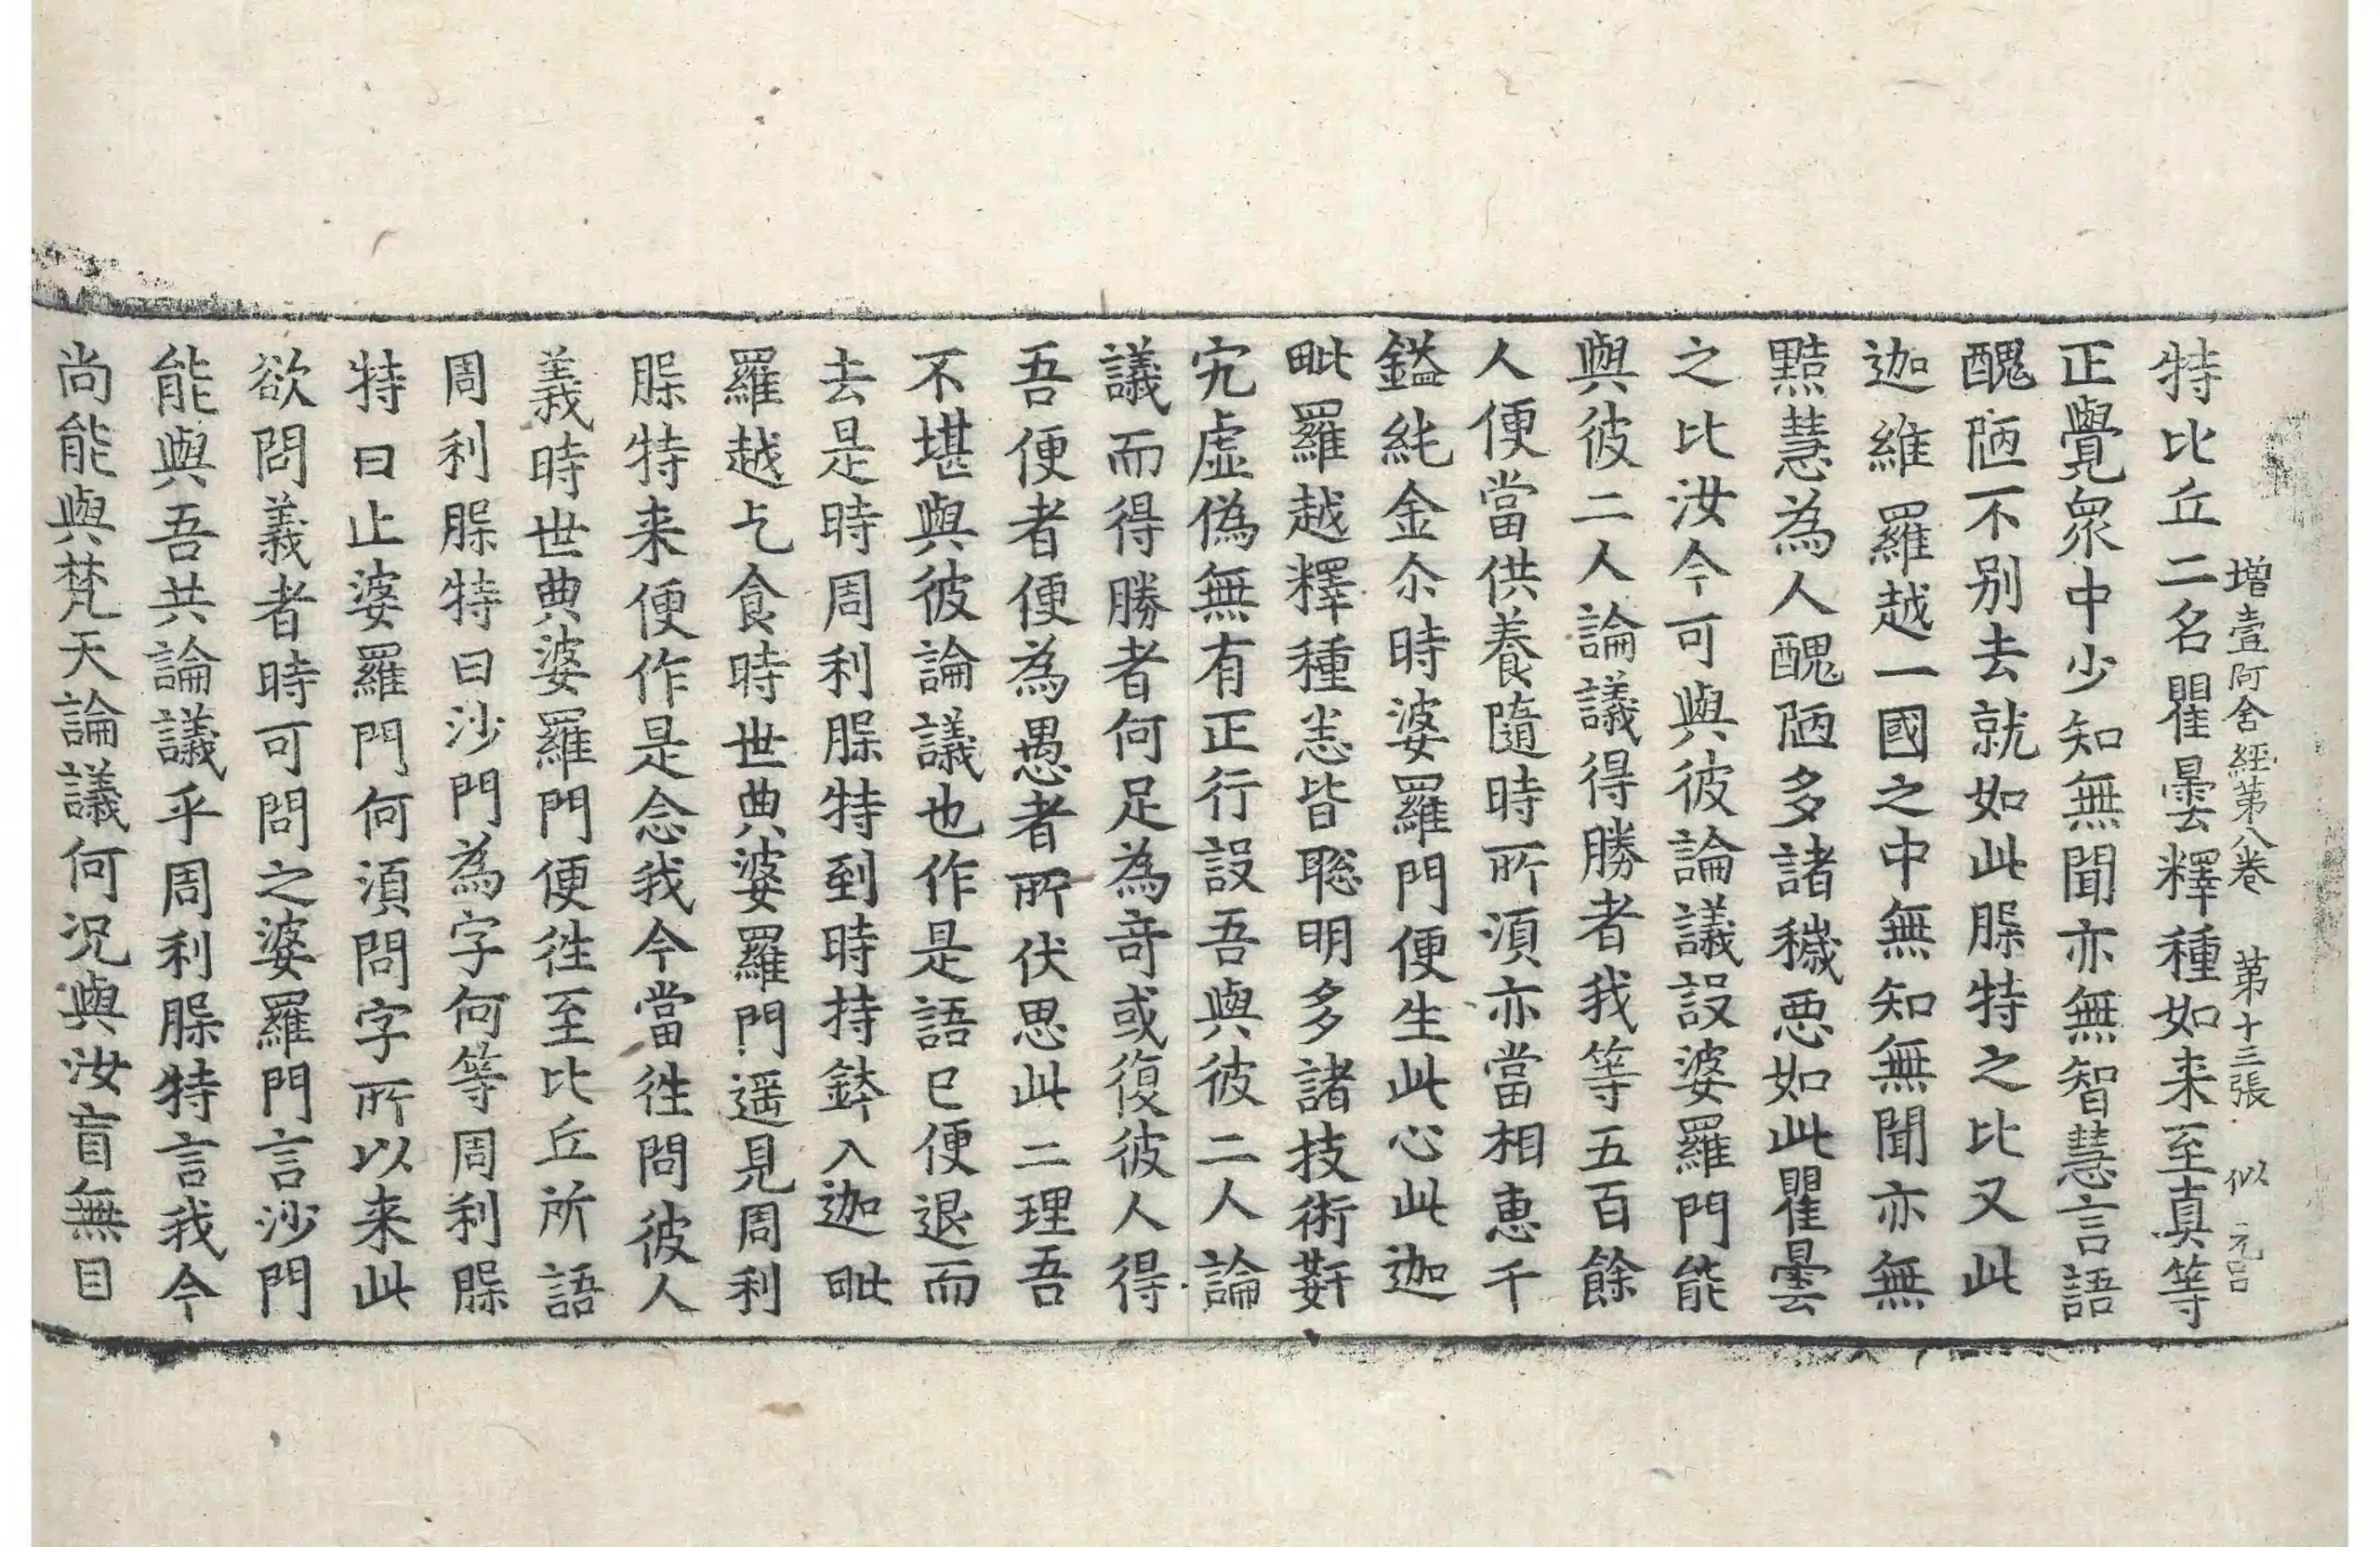 增壹阿含經第八卷 第十三張 似 元呂
特比丘二名瞿曇釋種如来至真等
正覺衆中少知無聞亦無智慧言語
醜陋不别去就如此䐗特之比又此
迦維羅越一國之中無知無聞亦無
黠慧為人醜陋多諸穢惡如此瞿曇
之比汝今可與彼論議設婆羅門能
與彼二人論議得勝者我等五百餘
人便當供養隨時所湏亦當相惠千
鎰純金尒時婆羅門便生此心此迦
毗羅越釋種恙皆聡明多諸技術姧
宄虛偽無有正行設吾與彼二人論
議而得勝者何足為竒或復彼人得
吾便者便為愚者所伏思此二理吾
不堪與彼論議也作是語已便退而
去是時周利䐗特到時持鉢入迦毗
羅越乞食時世典婆羅門遥見周利
䐗特来便作是念我今當往問彼人
義時世典婆羅門便往至比丘所語
周利䐗特曰沙門為字何等周利䐗
特曰止婆羅門何湏問字所以来此
欲問義者時可問之婆羅門言沙門
能與吾共論議乎周利䐗特言我今
尚能與梵天論議何况與汝盲無目